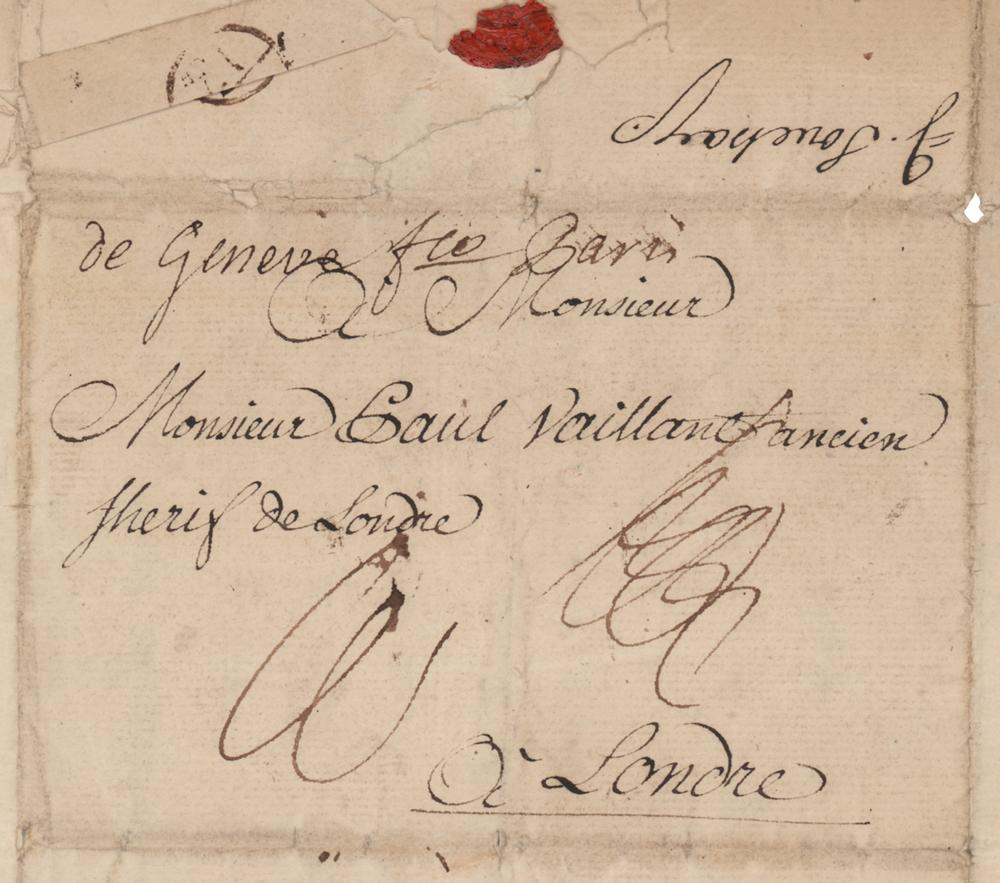 J. Souchay
de Geneve fco Paris
A Monsieur
Monsieur Paul Vaillant ancien
sherif de Londre
à Londre